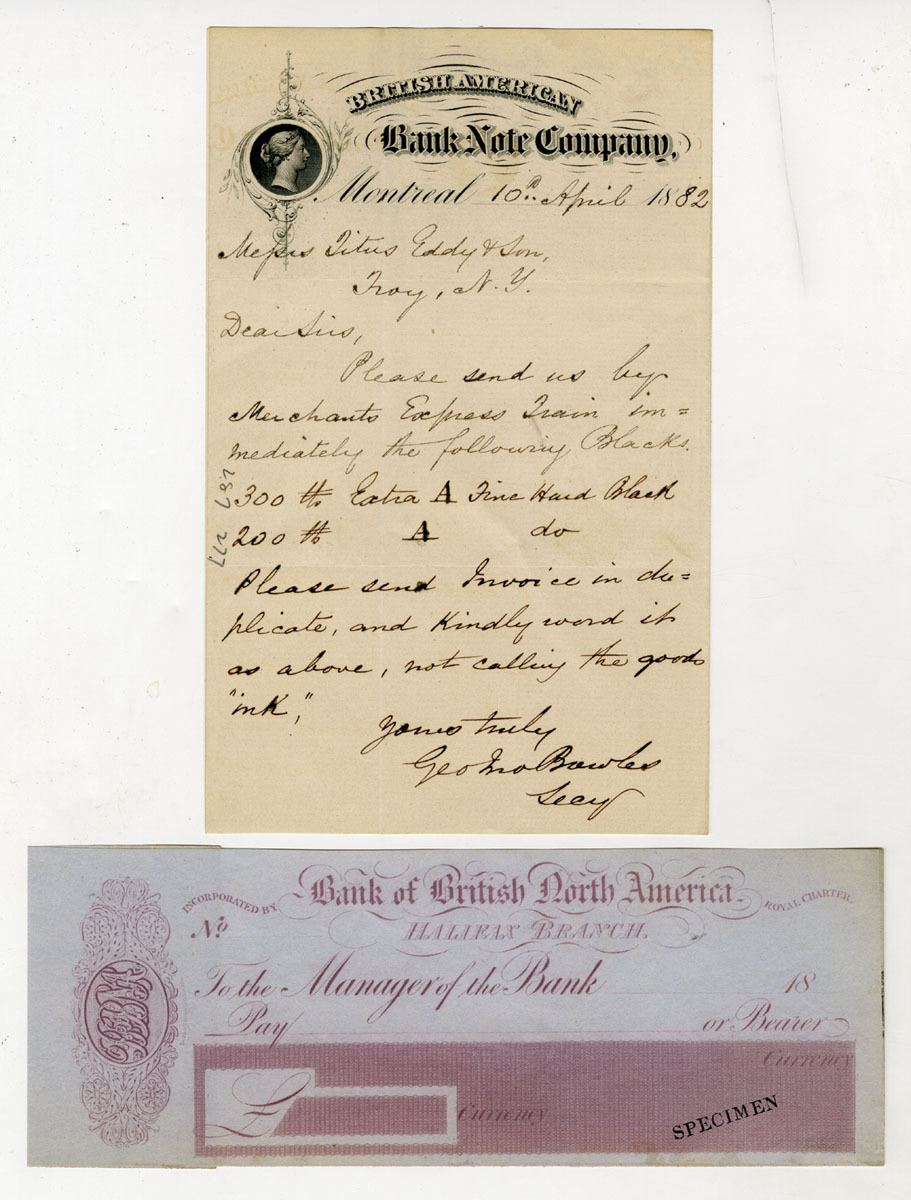 BRITISH AMERICAN
Bank Note Company,
Montreal 10th April 1882
Messrs Titus Eddy & Son,
Troy, N.Y.
Dear Sirs,
Please send us by
Merchants Express Train im=
mediately the following Blacks.
300 lb Extra A Fine Hard Black
200 lb A do
Please send Invoice in du=
plicate, and Kindly word it
as above, not calling the goods
"ink,"
Yours truly
Geo Jno Bowles
Secy
INCORPORATED BY Bank of British North America ROYAL CHARTER.
No HALIFAX BRANCH.
To the Manager of the Bank 18
Pay or Bearer
Currency
£ Currency
SPECIMEN